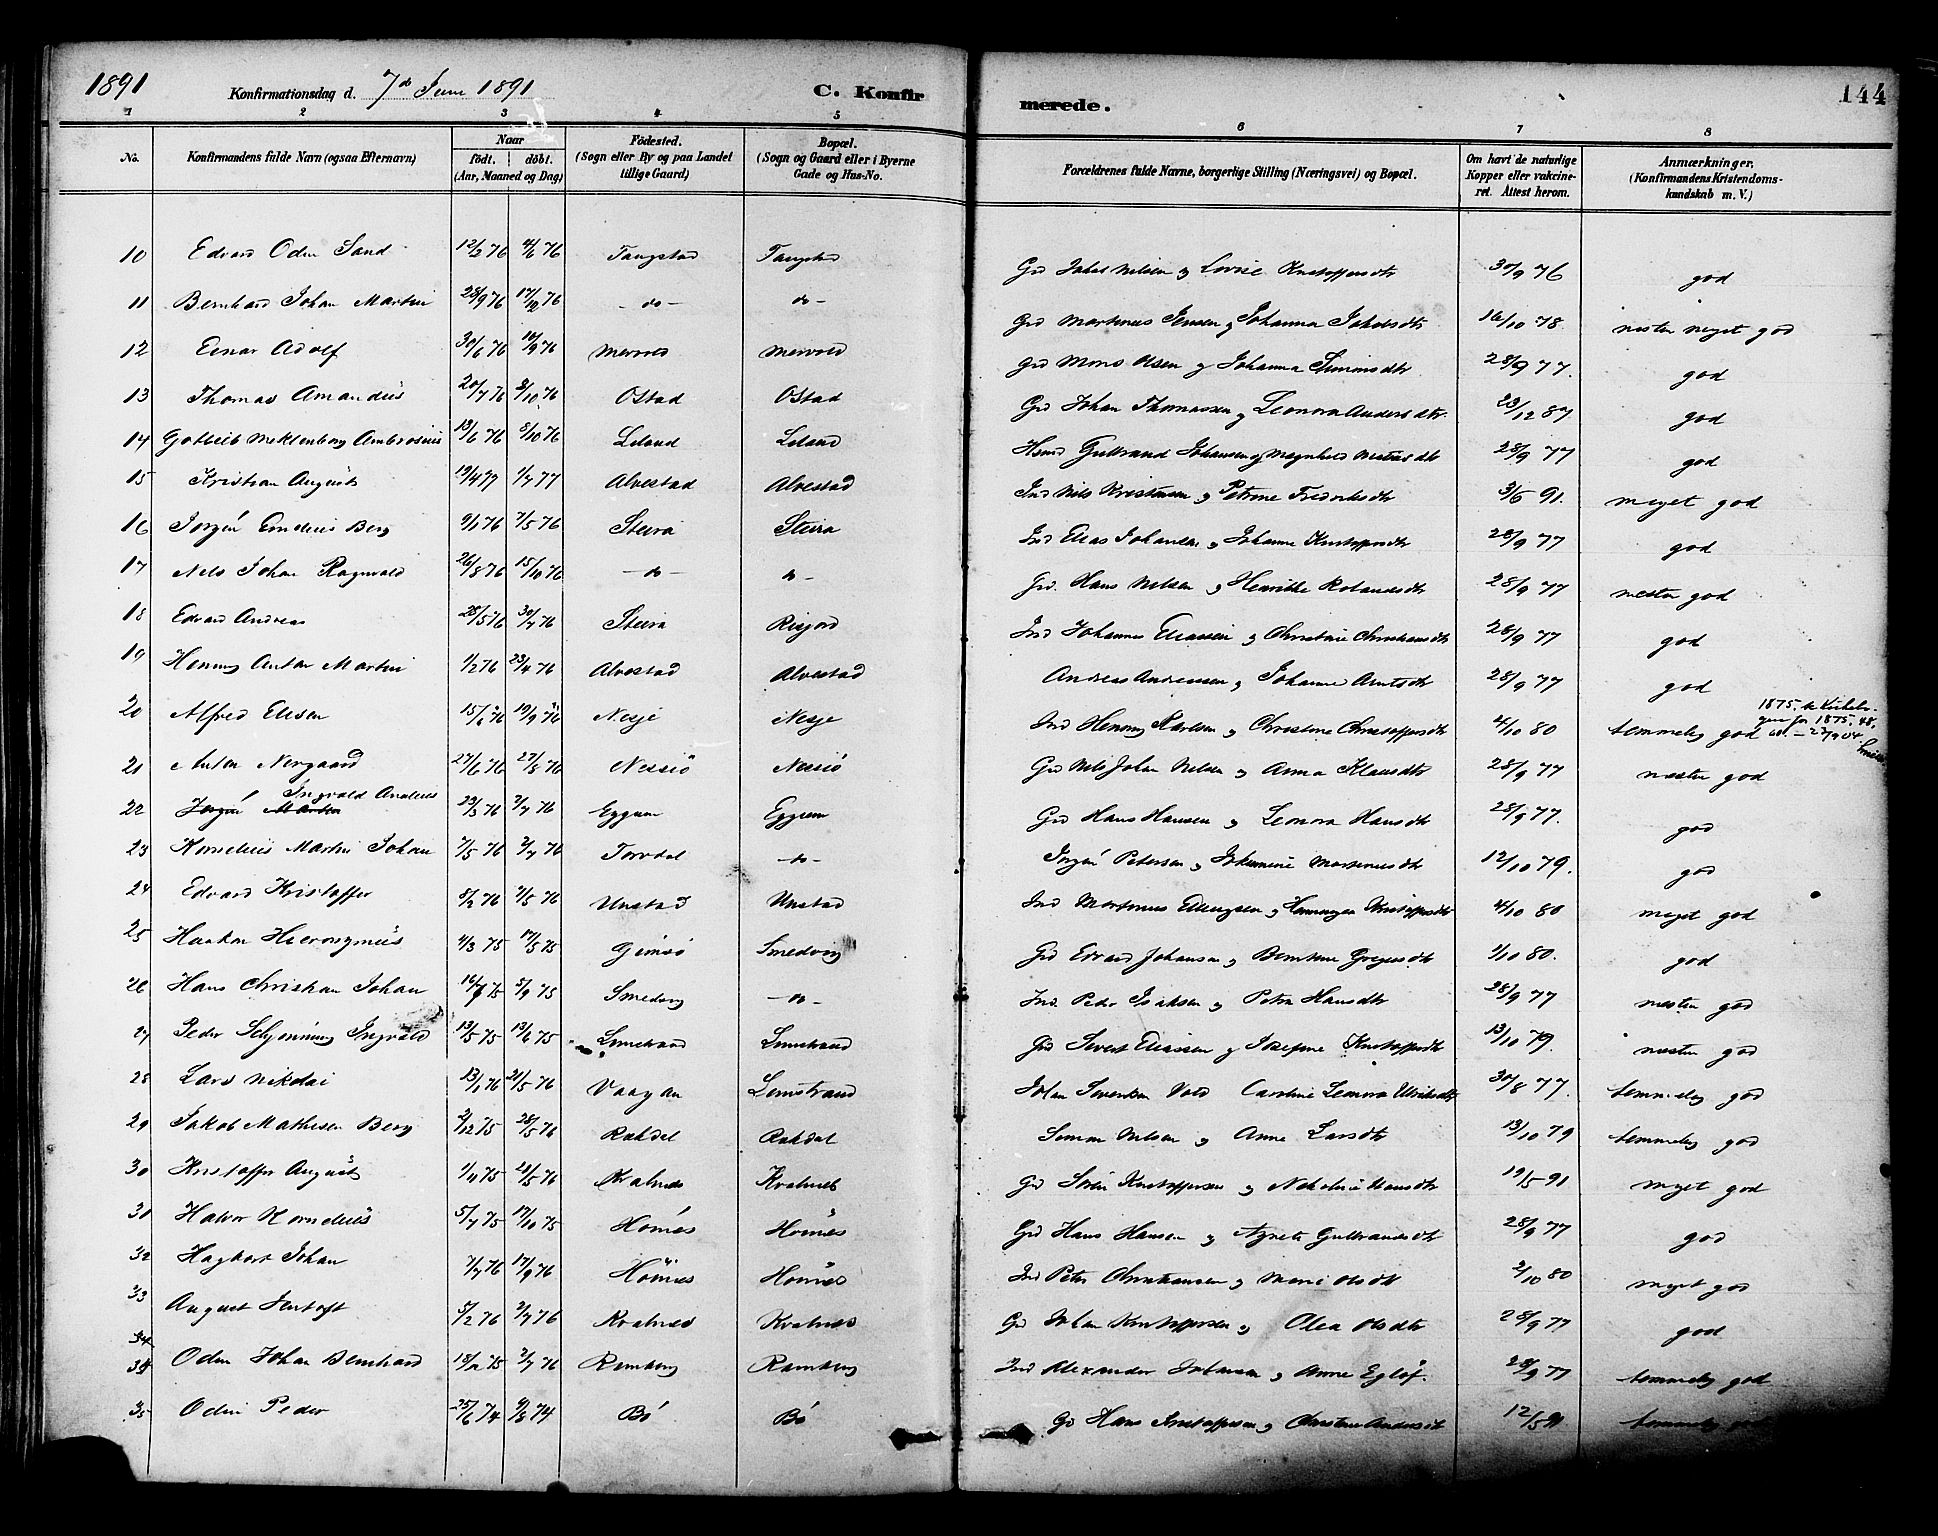 1891 Konfirmationsdag d. 7de Juni 1891 C. Konfirmerede. 144
1 2 3 4 5 6 7 8
No. Konfirmandens fulde Navn (ogsaa Efternavn) Naar født. døbt. (Aar, Maaned og Dag) Fødested. (Sogn eller By og paa Landet tillige Gaard) Bopæl. (Sogn og Gaard eller i Byerne Gade og Hus-No. Forældrenes fulde Navne, borgerlige Stilling (Næringsvei) og Bopæl. Om havt de naturlige Kopper eller vakcineret. Attest herom. Anmærkninger. (Konfirmandens Kristendomskundskab m. V.)
10 Edvard Odin Sand 12/2 76 4/6 76 Tangstad Tangstad Grd Jakob Nilsen og Lovise Kristoffersdtr 30/9 76 god
11 Bernhard Johan Martin 28/9 76 17/12 76 - do - do - Grd Martinus Jensen og Johanna Jakobsdtr 16/10 78. nesten meget god
12 Einar Adolf 30/6 76 10/9 76 Mervold Mervold Grd Mons Olsen og Johanna Simonsdtr 28/9 77. god
13 Thomas Amandus 20/7 76 8/10 76 Ostad Ostad Grd Johan Thomassen og Leonora Andersdtr. 23/12 87 god
14 Gotlieb Meklenborg Ambrosius 13/6 76 8/10 76 Leland Leland Hsmd Gulbrand Johansen og Magnhild dtr 28/9 77 god
15 Kristian August 19/4 77 1/7 77 Alvestad Alvestad Ind Nils Kristensen og Petrine Fredriksdtr 3/6 91. meget god
16 Jørgen Berg 9/1 76 7/5 76 Steira Steira Ind Elias Johansen og Johanna Kristoffersdtr 28/9 77 god
17 Nils Johan Ragnvald 26/8 76 15/10 76 - do - do - Grd. Hans Nilsen og Henrikke Rolandsdtr 28/9 77 nesten god
18 Edvard Andreas 28/5 76 30/7 76 Steira Risjord Ind Johannes Eliassen og Christine Christiansdtr 28/9 77 god
19 Henning Anton Martin 1/2 76 23/4 76 Alvestad Alvestad Andreas Andreassen og Johanna Arntsdtr 28/9 77 god
20 Alfred Elisen 15/6 76 19/9 76 Nesje Nesje Ind Henning Karlsen og Christine Christoffersdtr 4/10 80 temmelig god 1875. 1875.
21 Anton Nergaard 27/6 76 27/8 76 Nessiø Nessiø Grd Nils Johan Nilsen og Anna Klausdtr 28/9 77 nesten god
22 Jørgen Martin Ingvald Andreas 23/3 76 2/7 76 Eggum Eggum Grd Hans Hansen og Leonora Hansdtr 28/9 77. god
23 Kornelius Martin Johan 7/5 76 2/7 76 Torvdal - do - Jørgen Petersen og Martinusdtr 12/10 79. god
24 Edvard Kristoffer 8/2 76 7/5 76 Unstad Unstad Ind Martinus Ellingsen og Kristoffersdtr 4/10 80 meget god
25 Haakon Hieronymus 4/3 75 17/5 75 Gimsø Smedvig Grd Edvard Johansen og Berntine Gregersdtr 1/10 80. god
26 Hans Christian Johan 16/7 75 5/9 75 Smedvig - do - Ind. Peder Isaksen og Petra Hansdtr 28/9 77 nesten god
27 Peder Schjønning Ingvald 13/5 75 13/6 75 Limstrand Limstrand Grd Sivert Eliassen og Josefine Kristoffersdtr 13/10 79. nesten god
28 Lars Nikolai 13/1 76 21/5 76 Vaagan Limstrand Johan Sørensen Vold Caroline Leonora Ulriksdtr 30/8 77. temmelig god
29 Jakob Mathisen Berg 2/12 75 28/5 76 Rakdal Rakdal Simon Nilsen og Anne Larsdtr 13/10 79 temmelig god
30 Kristoffer August 1/11 75 28/5 76 Kvalnes Kvalnes Grd Søren Kristoffersen og Nikoline Hansdtr 19/5 91 meget god
30 Halvor Kornelius 5/7 75 17/10 75 Hornes Hornes Grd Hans Hansen og Agnete Gulbrandsdtr 28/9 77 god
32 Hagbart Johan 7/7 76 17/9 76 Hornes Hornes Ind Peter Christiansen og Marie Olsdtr 2/10 80 meget god
33 August Jentoft 5/2 76 2/7 76 Kvalnes Kvalnes Grd Johan Kristoffersen og Olea Olsdtr 28/9 77 god
34 Odin Johan Bernhard 18/12 75 2/7 76 Ramberg Ramberg Ind Alexander Johansen og Anne 28/9 77 temmelig god
35 Odin Peder 25/6 74 9/8 74 Bø Bø Grd Hans Kristoffersen og Christine Andersdtr 12/5 91 temmelig god